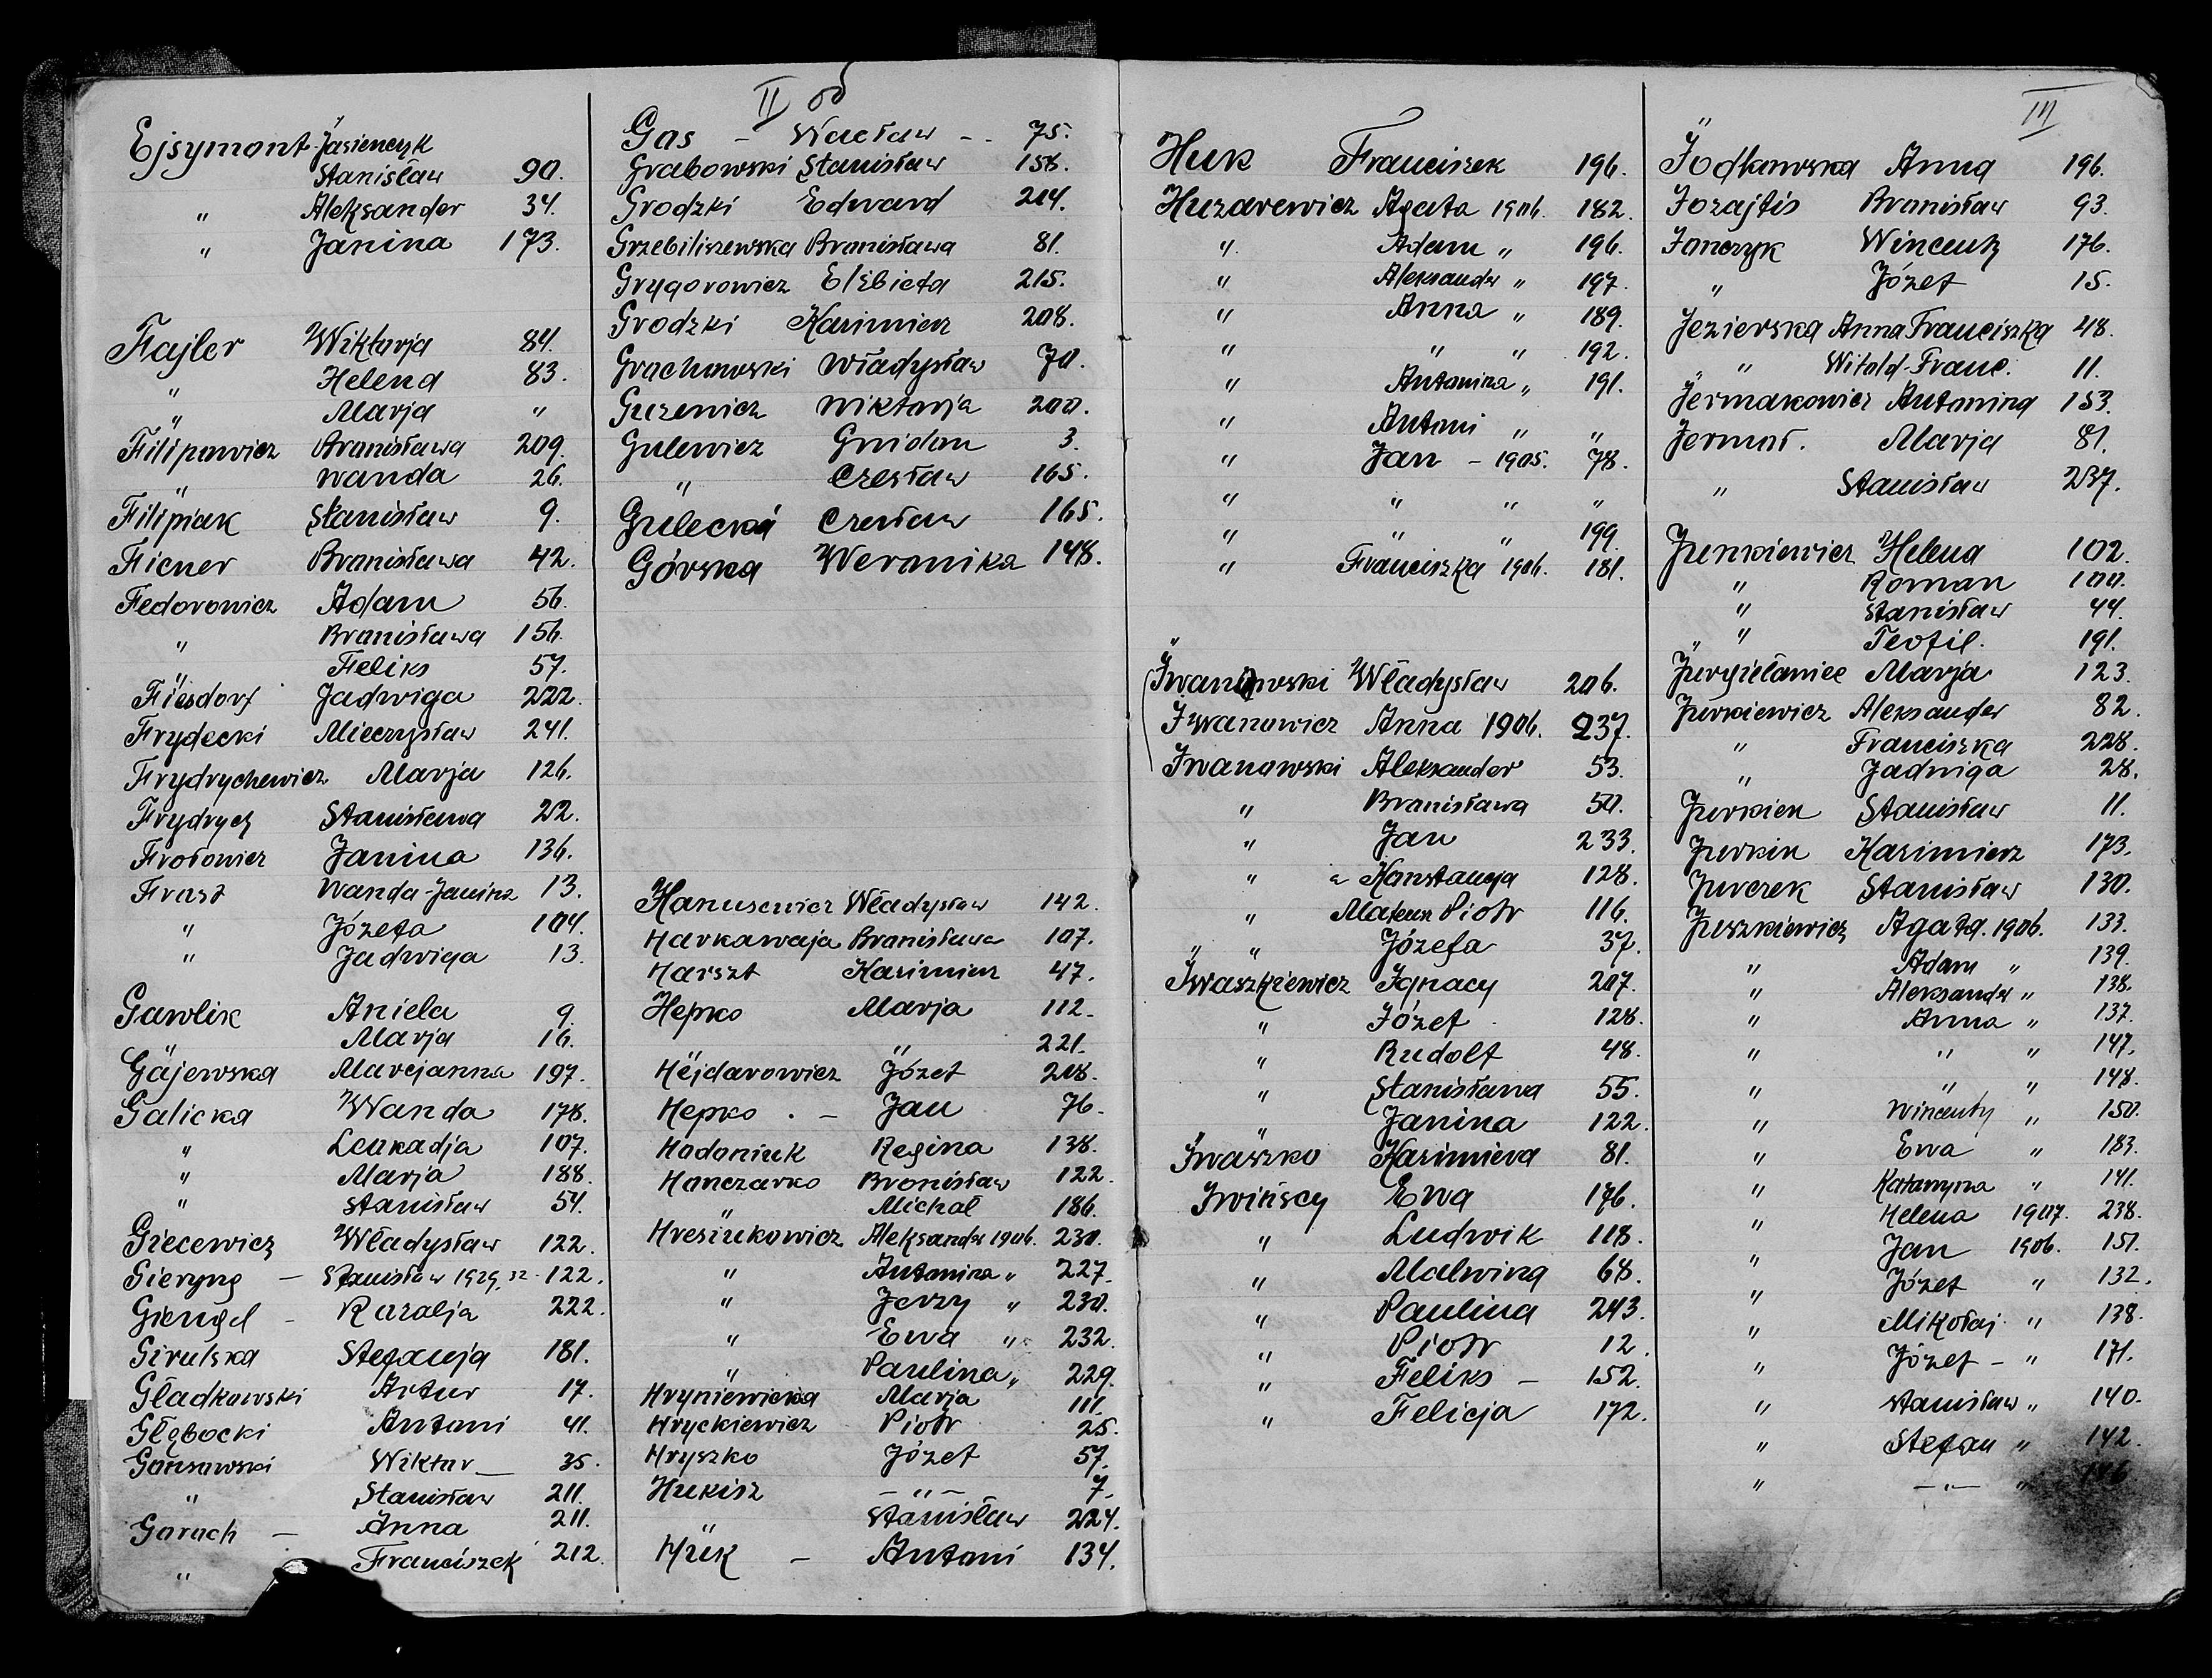 II
Ejsymont-Jasienczyk
Stanisław 90.
" Aleksander 34.
" Janina 173.
Fajler Wiktorja 84.
" Helena 83.
" Marja "
Filipowicz Bronisława 209.
" Wanda 26.
Filipiak Stanisław 9.
Ficner Bronisława 42.
Fedorowicz Adam 56.
" Bronisława 156.
" Feliks 57.
Fiesdorf Jadwiga 222.
Frydecki Mieczysław 241.
Frydrychewicz Marja 126.
Frydrych Stanisława 22.
Frołowicz Janina 136.
Frost Wanda-Janina 13.
" Józefa 104.
" Jadwiga 13.
Gawlik Aniela 9.
" Marja 16.
Gajewska Marcjanna 197.
Galicka Wanda 178.
" Leokadja 107.
" Marja 188.
" Stanisław 54.
Giecewicz Władysław 122.
Gieryng - Stanisław 1929, 32 - 122.
Giengel - Rozalja 222.
Girulska Stefanja 181.
Gładkowski Artur 17.
Głębocki Antoni 41.
Gąsowski Wiktor - 35.
" Stanisław 211.
Goroch - Anna 211.
" Franciszek 212.
Gos - Wacław - 75.
Grabowski Stanisław 158.
Grodzki Edward 214.
Grzebiliszewska Bronisława 81.
Grygorowicz Elżbieta 215.
Grodzki Kazimierz 208.
Grochowski Władysław 70.
Guzewicz Wiktorja 200.
Gulewicz Gwidon 3.
" Czesław 165.
Gulecki Czesław 165.
Górska Weronika 148.
Hanusewicz Władysław 142.
Harkawaja Bronisława 107.
Harszt Kazimierz 47.
Hepko Marja 112.
" " 221.
Hejdarowicz Józef 208.
Hepko - Jan 76.
Hodoniuk Regina 138.
Honczarko Bronisław 122.
" Michał 186.
Hresiukowicz Aleksander 1906. 230.
" Antonina " 227.
" Jerzy " 230.
" Ewa " 232.
" Paulina " 229.
Hryniewicka Marja 111.
Hryckiewicz Piotr 25.
Hryszko Józef 57.
Hukisz - " - 7.
" Stanisław 224.
Huk - Antoni 134.
III
Huk Franciszek 196.
Huzarewicz Agata 1906. 182.
" Adam " 196.
" Aleksander " 197.
" Anna " 189.
" " " 192.
" Antonina " 191.
" Antoni " "
" Jan - 1905. 78.
" " " "
" " " 199.
" Franciszka 1906. 181.
Iwanowski Władysław 206.
Iwanowicz Anna 1906. 237.
Iwanowski Aleksander 53.
" Bronisława 50.
" Jan 233.
" Konstancja 128.
" Mateusz Piotr 116.
" Józefa 37.
Iwaszkiewicz Ignacy 207.
" Józef 128.
" Rudolf 48.
" Stanisława 55.
" Janina 122.
Iwaszko Kazimiera 81.
Iwińscy Ewa 176.
" Ludwik 118.
" Malwina 68.
" Paulina 243.
" Piotr 12.
" Feliks - 152.
" Felicja 172.
Jodkowska Anna 196.
Jozajtis Bronisław 93.
Jonczyk Wincenty 176.
" Józef 15.
Jezierska Anna Franciszka 48.
" Witold-Franc. 11.
Jermakowicz Antonina 153.
Jermoł. Marja 81.
" Stanisław 237.
Junkiewicz Helena 102.
" Roman 100.
" Stanisław 44.
" Teofil. 191.
Jurgielaniec Marja 123.
Jurkiewicz Aleksander 82.
" Franciszka 228.
" Jadwiga 28.
Jurkien Stanisław 11.
Jurkin Kazimierz 173.
Jurczek Stanisław 130.
Juszkiewicz Agata. 1906. 133.
" Adam " 139.
" Aleksander " 138.
" Anna " 137.
" " " 147.
" " " 148.
" Wincenty " 150.
" Ewa " 183.
" Katarzyna " 141.
" Helena 1907. 238.
" Jan 1906. 151.
" Józef " 132.
" Mikołaj " 138.
" Józef - " 171.
" Stanisław " 140.
" Stefan " 142.
" - " - " 146